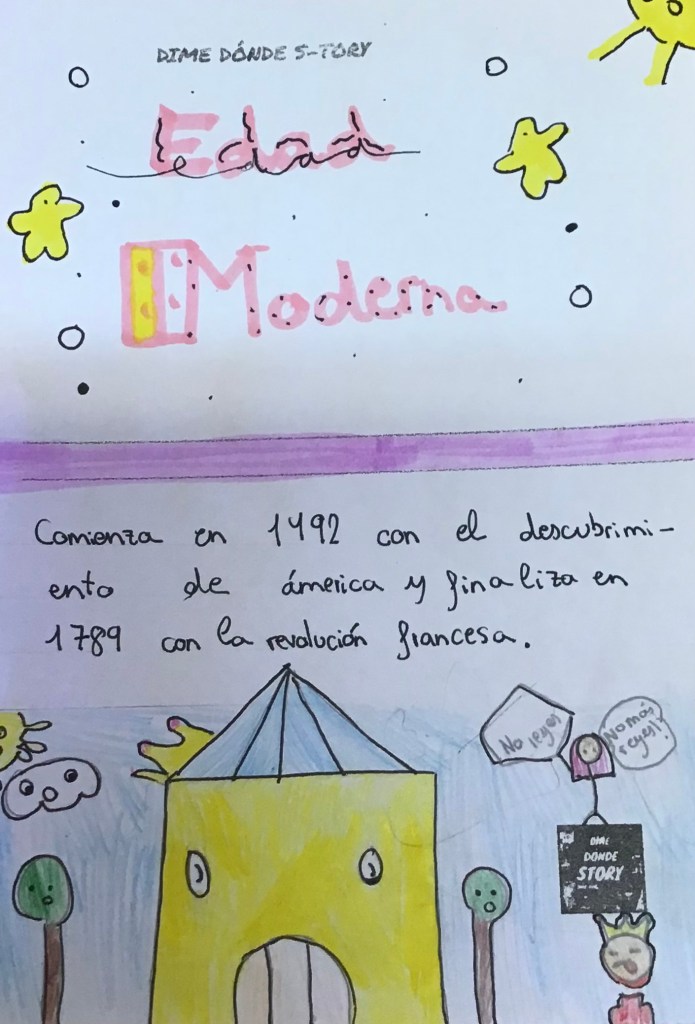 DIME DÓNDE S-TORY
Edad
Moderna
Comienza en 1492 con el descubrimi-
ento de ámerica y finaliza en
1789 con la revolución francesa.
No reyes
No más
reyes!!
DIME
DONDE
STORY